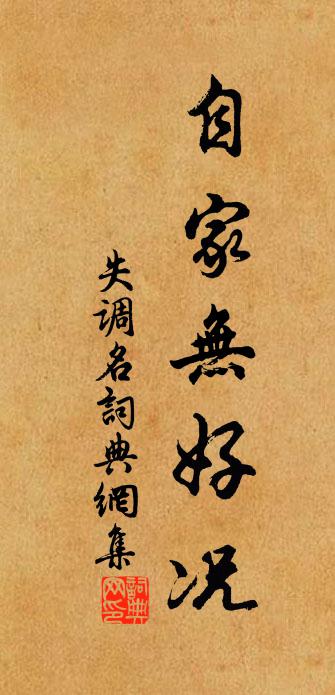 自家無好况
失調名詞典網集
詞典
网印